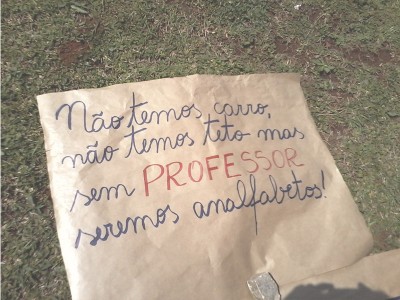 Não temos carro,
não temos teto mas
sem PROFESSOR
seremos analfabetos!